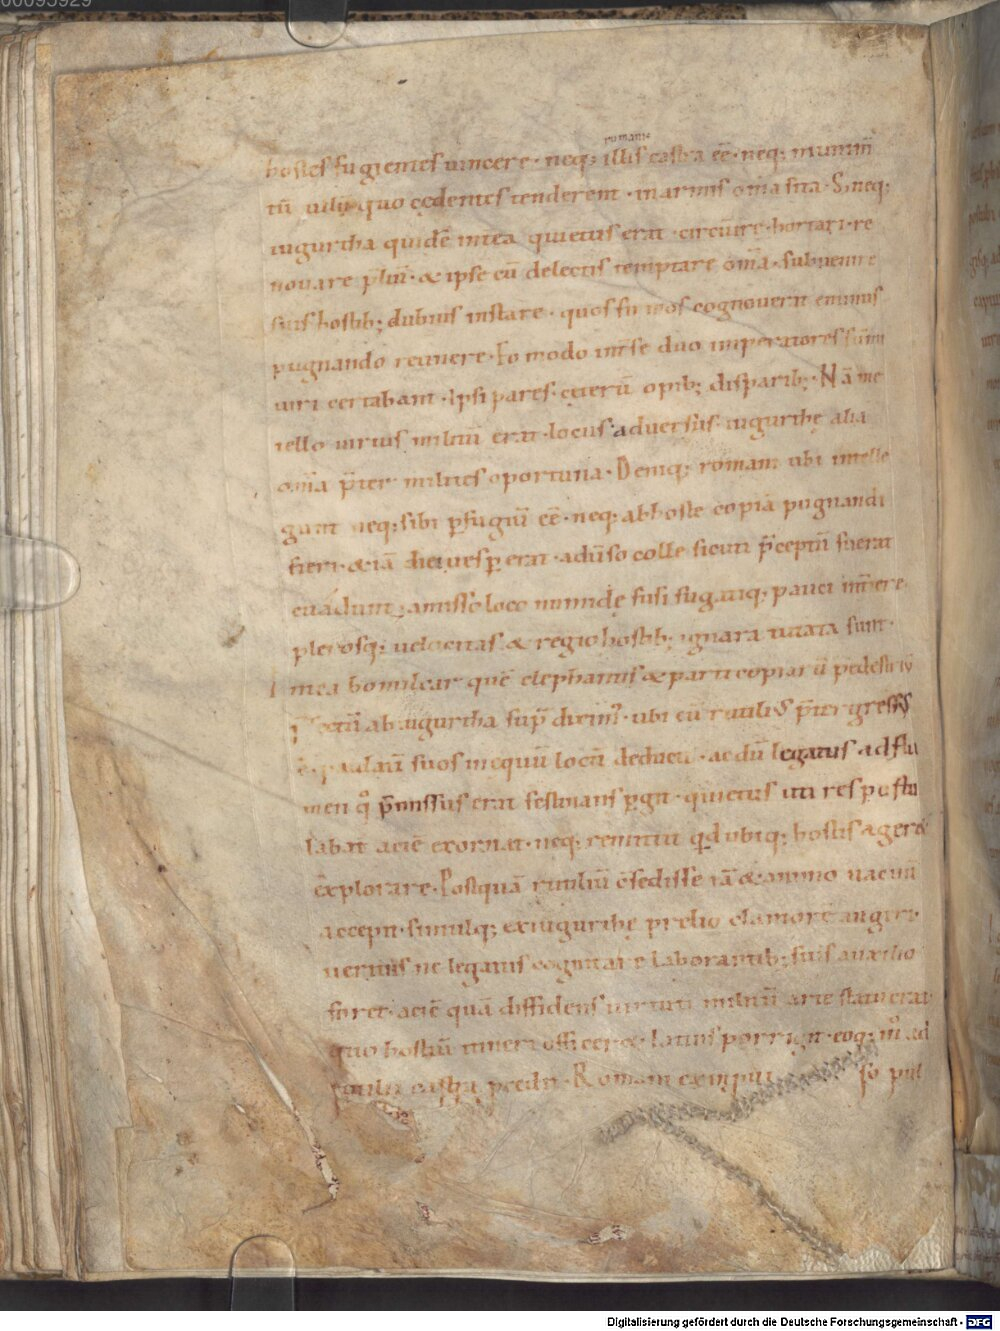 00095929
romanis
hostes fugientes uincere · neq; illis castra eẽ · neq; munim̃
tũ ullũ quo cędentes tenderent · in armis om̃a sita · S; neq;
iugurtha quidẽ interea quietus erat · circũire · hortari · re
nouare pliũ · & ipse cũ delectis temptare om̃a · subuenire
suis hostib; dubiis instare · quos firmos cognouerat eminus
pugnando retinere · Eo modo int̃ se duo imperatores sũmi
uiri certabant · Ipsi pares · cęterũ opib; disparib; · Nã me
tello uirtus militũ erat · locus aduersus · iugurthę alia
om̃ia p̃ter milites oportuna · Deniq; romani ubi intelle
gunt neq; sibi ꝑfugiũ eẽ · neq; ab hoste copiã pugnandi
fieri · & iã die uesꝑ erat · aduso colle sicuti p̃ceptũ fuerat
euadunt; amisso loco numidę fusi fugatiq; pauci int̃iere
plerosq; uelocitas & regio hostib; ignara tutata sunt ·
Interea bomilcar quẽ elephantis & parti copiarũ pedestriũ
p̃fectũ ab iugurtha sup̃ dixim⁹ · ubi eũ rutilius p̃tergressus
ẽ · paulatĩ suos in equũ locũ deducit · ac dũ legatus ad flu
men q° p̃missus erat festinans ꝑgit · quietus uti res postu
labat aciẽ exornat · neq; remittit qd ubiq; hostis ageret
explorare · Postquã rutiliũ c̃sedisse iã & animo uacuũ
accepit · simulq; ex iugurthę prelio clamorẽ augeri ·
ueritus ne legatus cognita re laborantib; suis auxilio
foret · aciẽ quã diffidens uirtuti militũ arte statuerat
quo hostiũ itineri officeret · latius porrigit · eoq; m° ad
rutilii castra procedit · Romani ex impui so pul
Digitalisierung gefördert durch die Deutsche Forschungsgemeinschaft - DFG